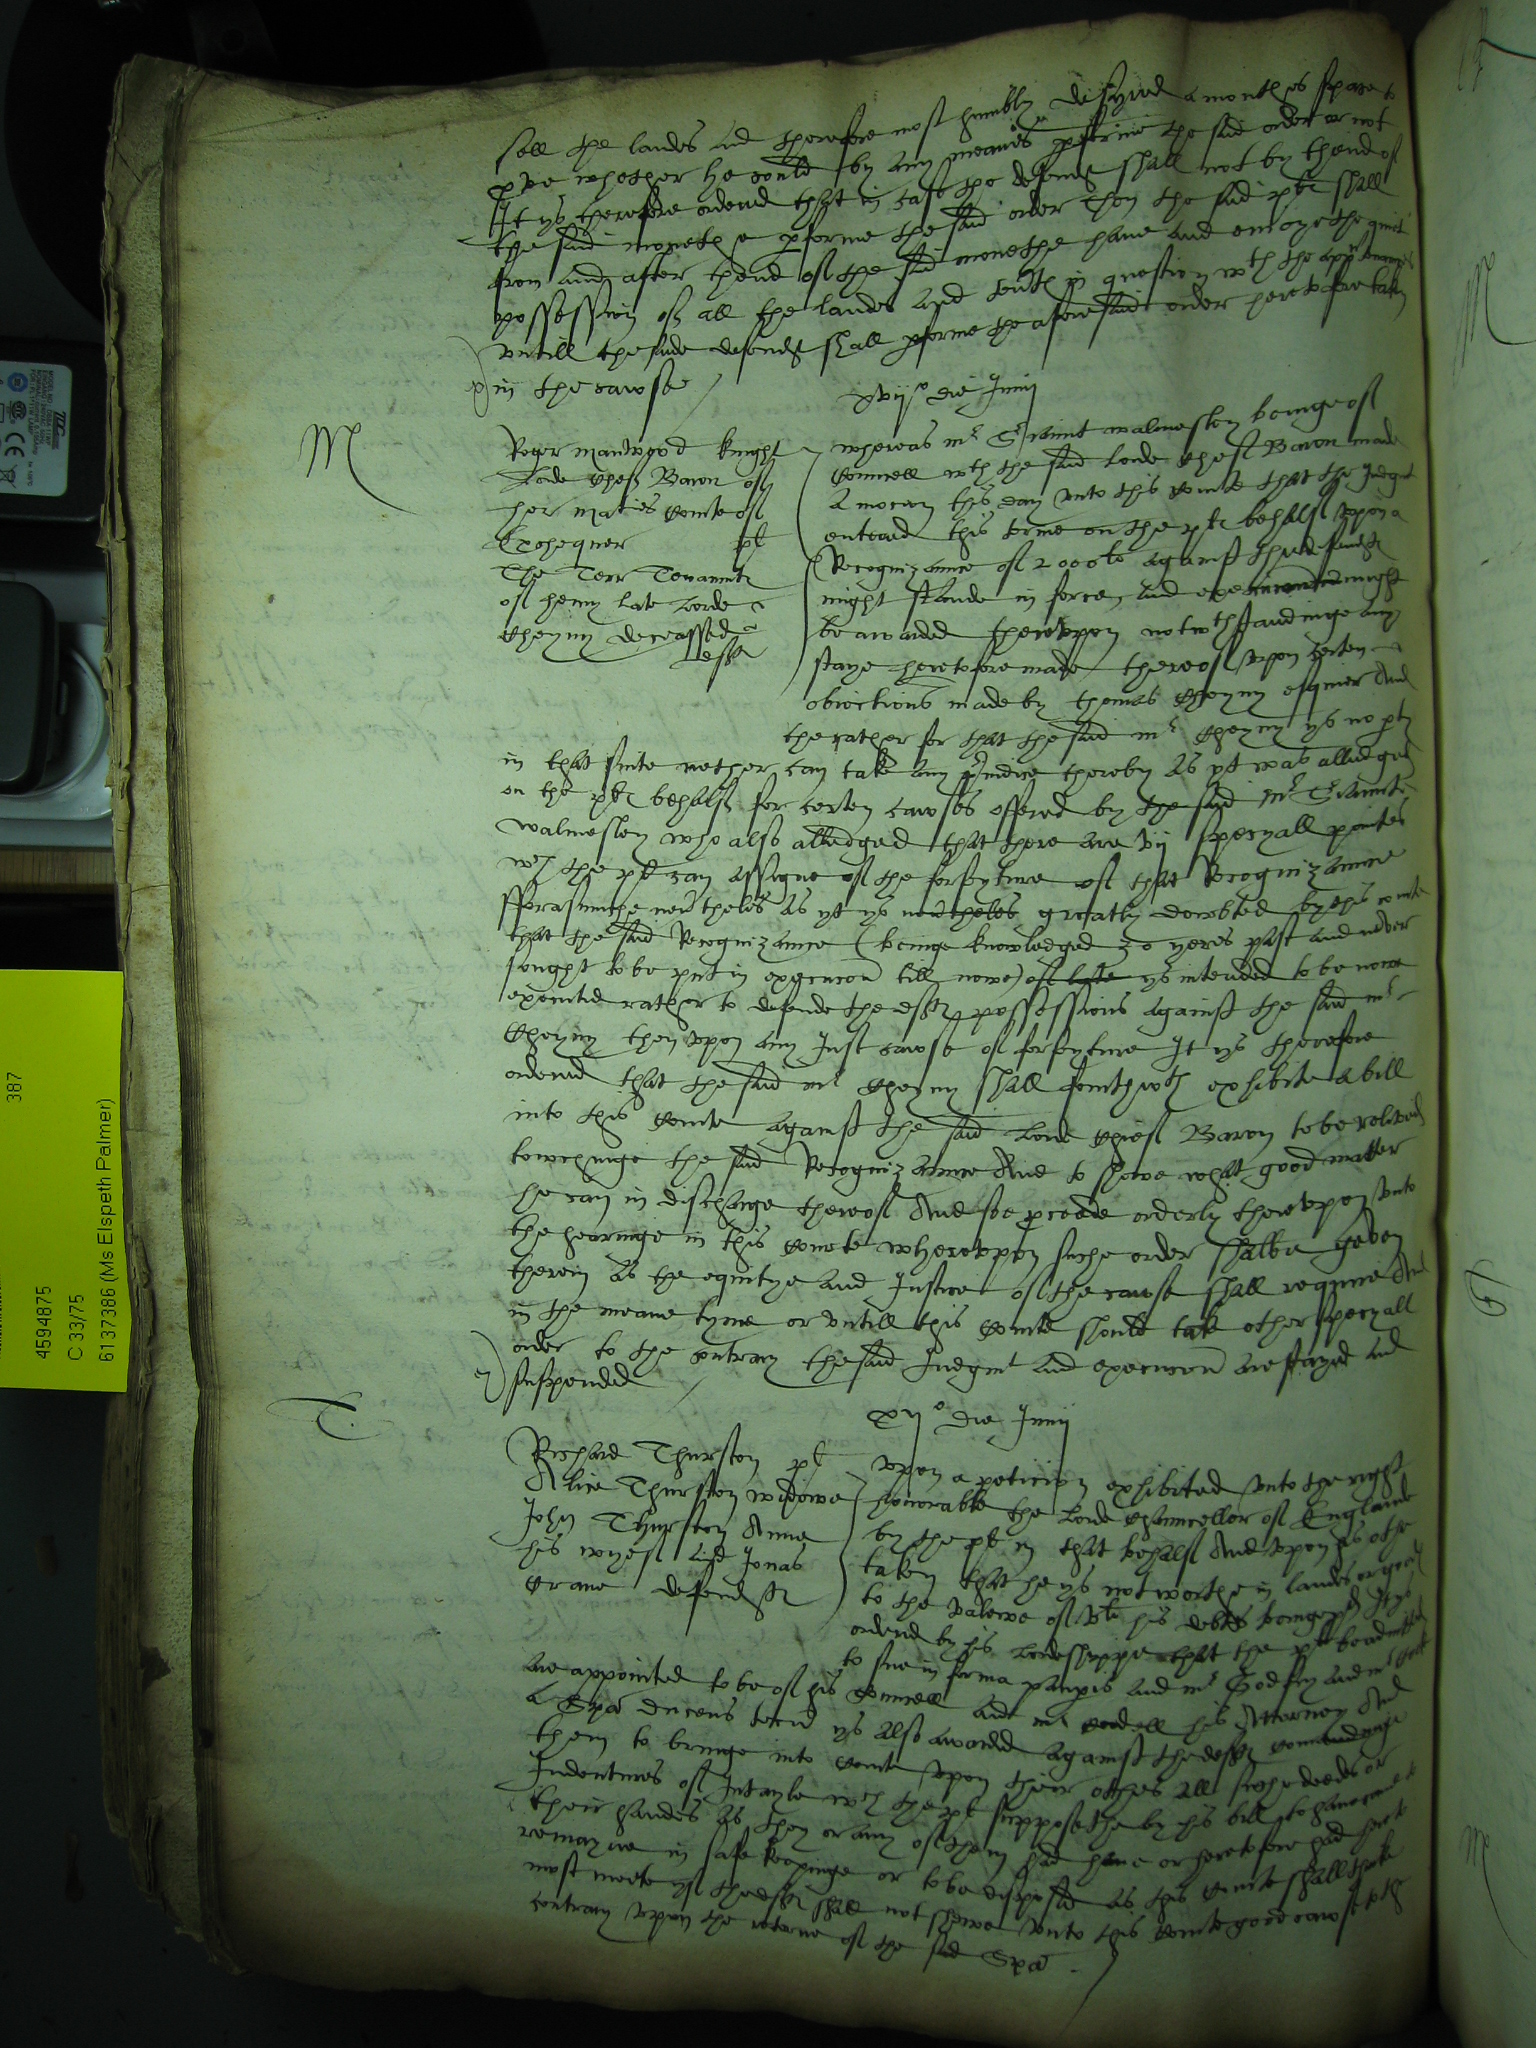 sell the landes and therefore most humbly desyred a monethes space to
prove whether he could by any meanes performe the said order or not
It ys therefore ordered that in case the defendt shall not by thend of
the said moneth performe the said order then the said plt shall
from and after thend of the said monethe have and enioye the quiet
possession of all the landes and tents in question wth the appurtenances
untill the saide defendt shall performe the aforesaid order heretofore taken
in the cawse
xvijo die Junij
M
Roger Manwood knight
Lorde Cheif Baron of
her maties Courte of
Exchequer plt
The Terr Tenaunts
of henry late Lorde
Cheyny deceassed
defts
whereas mr Sriaunt walmesley beinge of
Councell wth the said Lorde Cheif Baron made
a mocion this day unto this Courte that the Judgmt
entered this terme on the plts behalf upon a
Recognizaunce of 2000li against the defendts
might stande in force and execucion might
be awarded thereuppon notwthstandinge any
staye heretofore made thereof upon certen
obiections made by thomas Cheyny esquier And
the rather for that the said mr Cheyny ys no pty
in that suite nether can take any preiudice thereby as yt was alledged
on the plts behalf for certen cawses offered by the said mr Sriaunte
walmesley who also alledged that there are vij specyall pointes
wch the plt can assigne of the forfeyture of that Recognizaunce
fforasmuche neverthelesse as yt ys neverthelesse greatly doubted by this courte
that the said Recognizaunce (beinge knowledged 30 yeres past and never
sought to be put in execucion till nowe) of late ys intended to be nowe
executed rather to defende the defts possessions against the said mr
Cheyny then upon any Just cawse of forfeyture It ys therefore
ordered that the said mr Cheyny shall fourthwth exhibite a bill
into this Courte against the said Lorde Chief Baron to be releived
towchinge the said Recognizaunce And to shewe what good matter
he can in discharge thereof And soe proceede orderly thereuppon unto
the hearinge in this Courte whereuppon suche order shalbe geven
therein as the equitye and Justice of the cawse shall require And
in the meane tyme or untill this Courte should take other specyall
order to the contrary the said Judgmt and execucion are stayed and
suspended
T
xvijo die Junij
Richard Thurston plt
Alice Thurston widowe
John Thurston Anne
his wyef and Jonas
Crane defendts
upon a peticion exhibited unto the right
honorable the Lorde Chauncellor of Englande
by the plt in that behalf And upon his othe
taken that he ys not worthe in landes or goods
to the valewe of vli his debtes beinge pd It ys
ordered by his Lordshippe that the plt be admitted
to sue in forma pauperis and mr Godfry and mr
are appointed to be of his Councell and mr Cordell his Attorney And
a Spa ducens tecum ys also awarded against the defts commaundinge
them to bringe into Courte upon their othes all suche deedes or
Indentures of Intayle wch the plt supposethe by his bill to have come to
their handes as they or any of them had have or heretofore had here to
remayne in safe keepinge or to be disposed as this Courte shall thinke
most meete yf the defts shall not shewe unto this Courte good cawse to the
contrary upon the retorne of the said Spa
4594875 387
C 33/75
6137386 (Ms Elspeth Palmer)